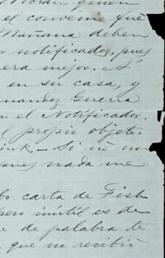 el convenio que
Mañana deben
notificados, pues
era mejor. A
en su casa, y
nandez Guerra
en el Notificador.
l propio objeti
ink - Si ú no
nada me
carta de Fish
pero inútil es de
de palabra te
que no recibió